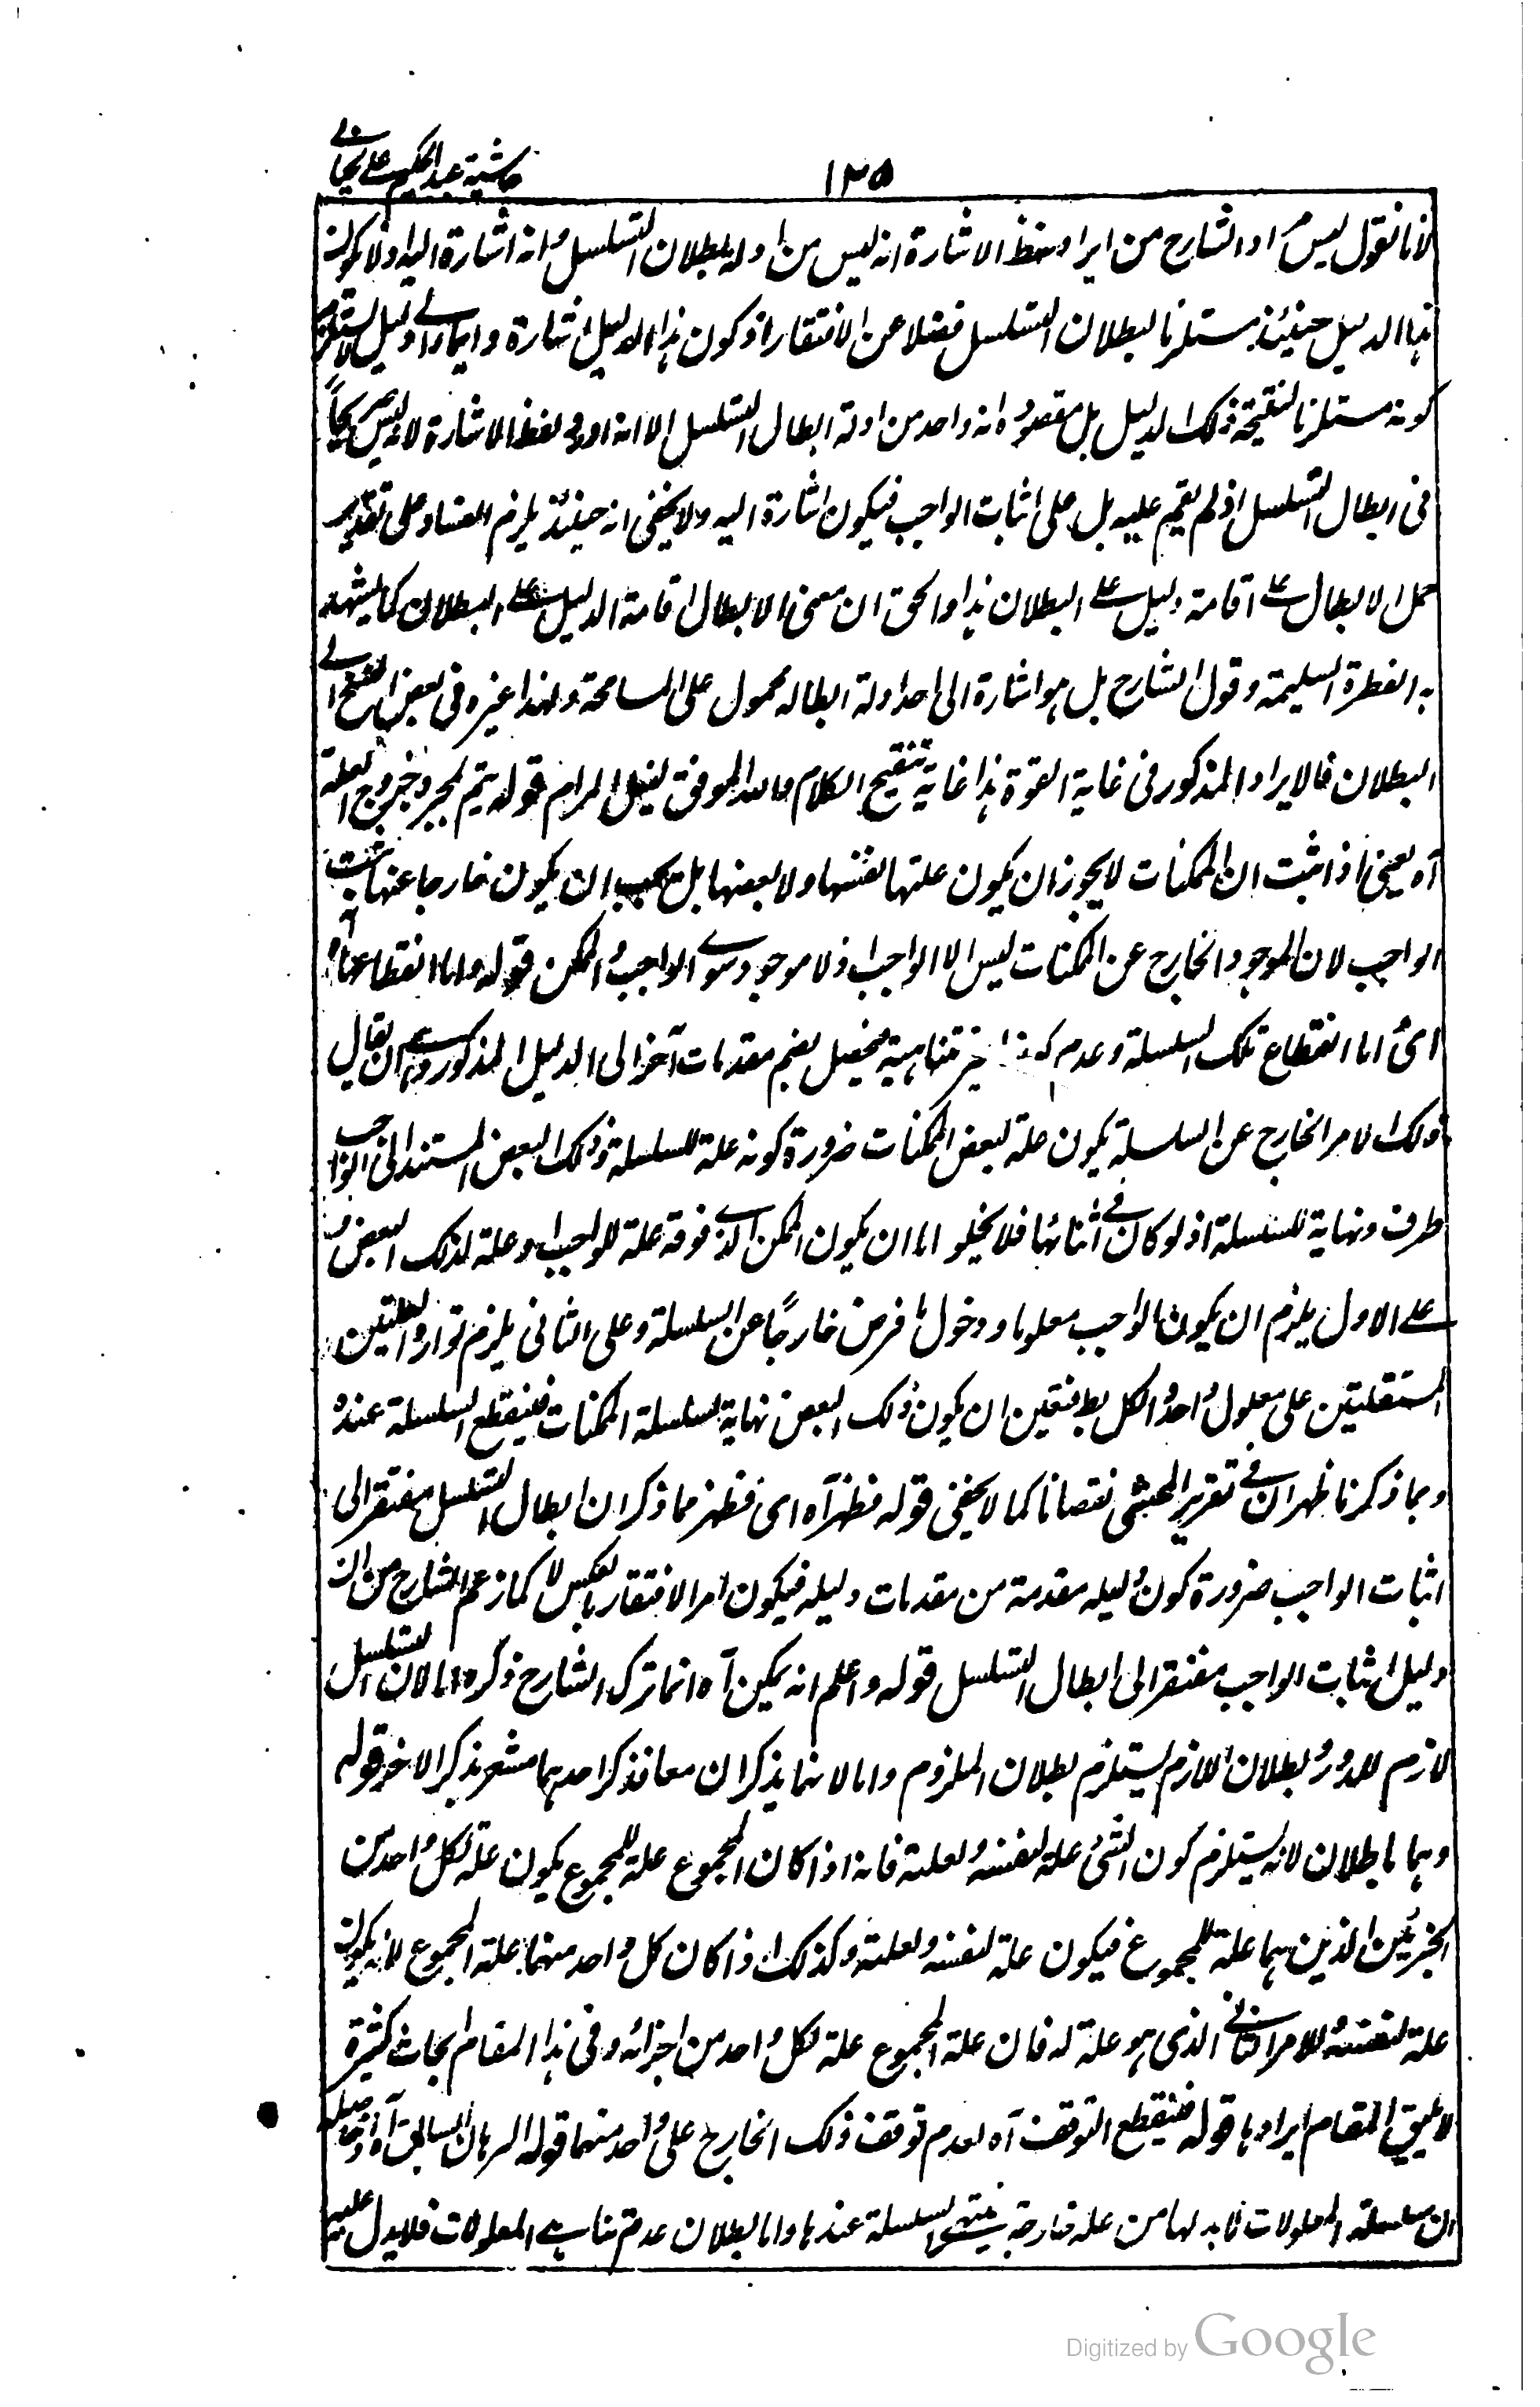 ١٣٥
حاشية عبد الحكيم على خيالي
لانا نقول ليس مراد الشارح من ايراد لفظ الاشارة انه ليس من ادلة بطلان التسلسل وانه اشارة اليه ولا يكون
هذا الدليل حينئذ مستلزما لبطلان التسلسل فضلا عن الافتقار اذ كون هذا الدليل اشارة وايماء الى دليل لا يستلزم
كونه مستلزما لنتيجة ذلك الدليل بل مقصوده انه واحد من ادلة ابطال التسلسل الا انه اورد لفظ الاشارة لانه ليس صريحاً
فى ابطال التسلسل اذ لم يقم عليه بل على اثبات الواجب فيكون اشارة اليه ولا يخفى انه حينئذ يلزم الفساد على تقدير
حمل الابطال على اقامة دليل على البطلان هذا والحق ان معنى الابطال اقامة الدليل على البطلان كما يشهد
به الفطرة السليمة وقول الشارح بل هو اشارة الى احد ادلة ابطاله محمول على المسامحة ولهذا غيره فى بعض النسخ الى
البطلان فالايراد المذكور فى غاية القوة هذا غاية تنقيح الكلام والله الموفق لنيل المرام قوله يتم بمجرد خروج العلة
آه يعنى اذا ثبت ان الممكنات لا يجوز ان يكون علتها نفسها ولا بعضها بل يجب ان يكون خارجا عنها ثبت
الواجب لان الموجود الخارج عن الممكنات ليس الا الواجب اذ لا موجود سوى الواجب والممكن قوله واما انقطاعها آه
اى اما انقطاع تلك السلسلة وعدم كونها غير متناهية فيحصل بضم مقدمات آخر الى الدليل المذكور وهى ان يقال
ذلك الامر الخارج عن السلسلة يكون علة لبعض الممكنات ضرورة كونه علة للسلسلة وذلك البعض المستند الى الواجب
طرف ونهاية للسلسلة اذ لو كان فى اثنائها فلا يخلو اما ان يكون الممكن الذى فوقه علة للواجب او علة لذلك البعض و
على الاول يلزم ان يكون الواجب معلولا ودخول ما فرض خارجاً عن السلسلة وعلى الثانى يلزم توارد العلتين
المستقلتين على معلول واحد والكل بط فتعين ان يكون ذلك البعض نهاية لسلسلة الممكنات فينقطع السلسلة عنده
وبما ذكرنا ظهر ان فى تقرير المحشى نقصانا كما لا يخفى قوله فظهر آه اى فظهر مما ذكر ان ابطال التسلسل مفتقر الى
اثبات الواجب ضرورة كون دليله مقدمة من مقدمات دليله فيكون امر الافتقار بالعكس لا كما زعم الشارح من ان
دليل اثبات الواجب مفتقر الى ابطال التسلسل قوله واعلم انه يمكن آه انما ترك الشارح ذكره اما لان التسلسل
لازم للدور وبطلان اللازم يستلزم بطلان الملزوم واما لانهما يذكران معا فذكر احدهما مشعر بذكر الاخر قوله
وهما باطلان لانه يستلزم كون الشئ علة لنفسه ولعلته فانه اذا كان المجموع علة للمجموع يكون علة لكل واحد من
الجزئين الذين هما علة للمجموع فيكون علة لنفسه ولعلته وكذلك اذا كان كل واحد منهما علة المجموع لانه يكون
علة لنفسه وللامر الثانى الذى هو علة له فان علة المجموع علة لكل واحد من اجزائه وفى هذا المقام ابحاث كثيرة
لا يليق المقام ايرادها قوله فينقطع التوقف آه لعدم توقف ذلك الخارج على واحد منهما قوله البرهان السابق آه اذ حاصله
ان سلسلة المعلولات لابد لها من علة خارجة ينتهى السلسلة عندها واما بطلان عدم تناهى المعلولات فلا يدل عليه
Digitized by Google